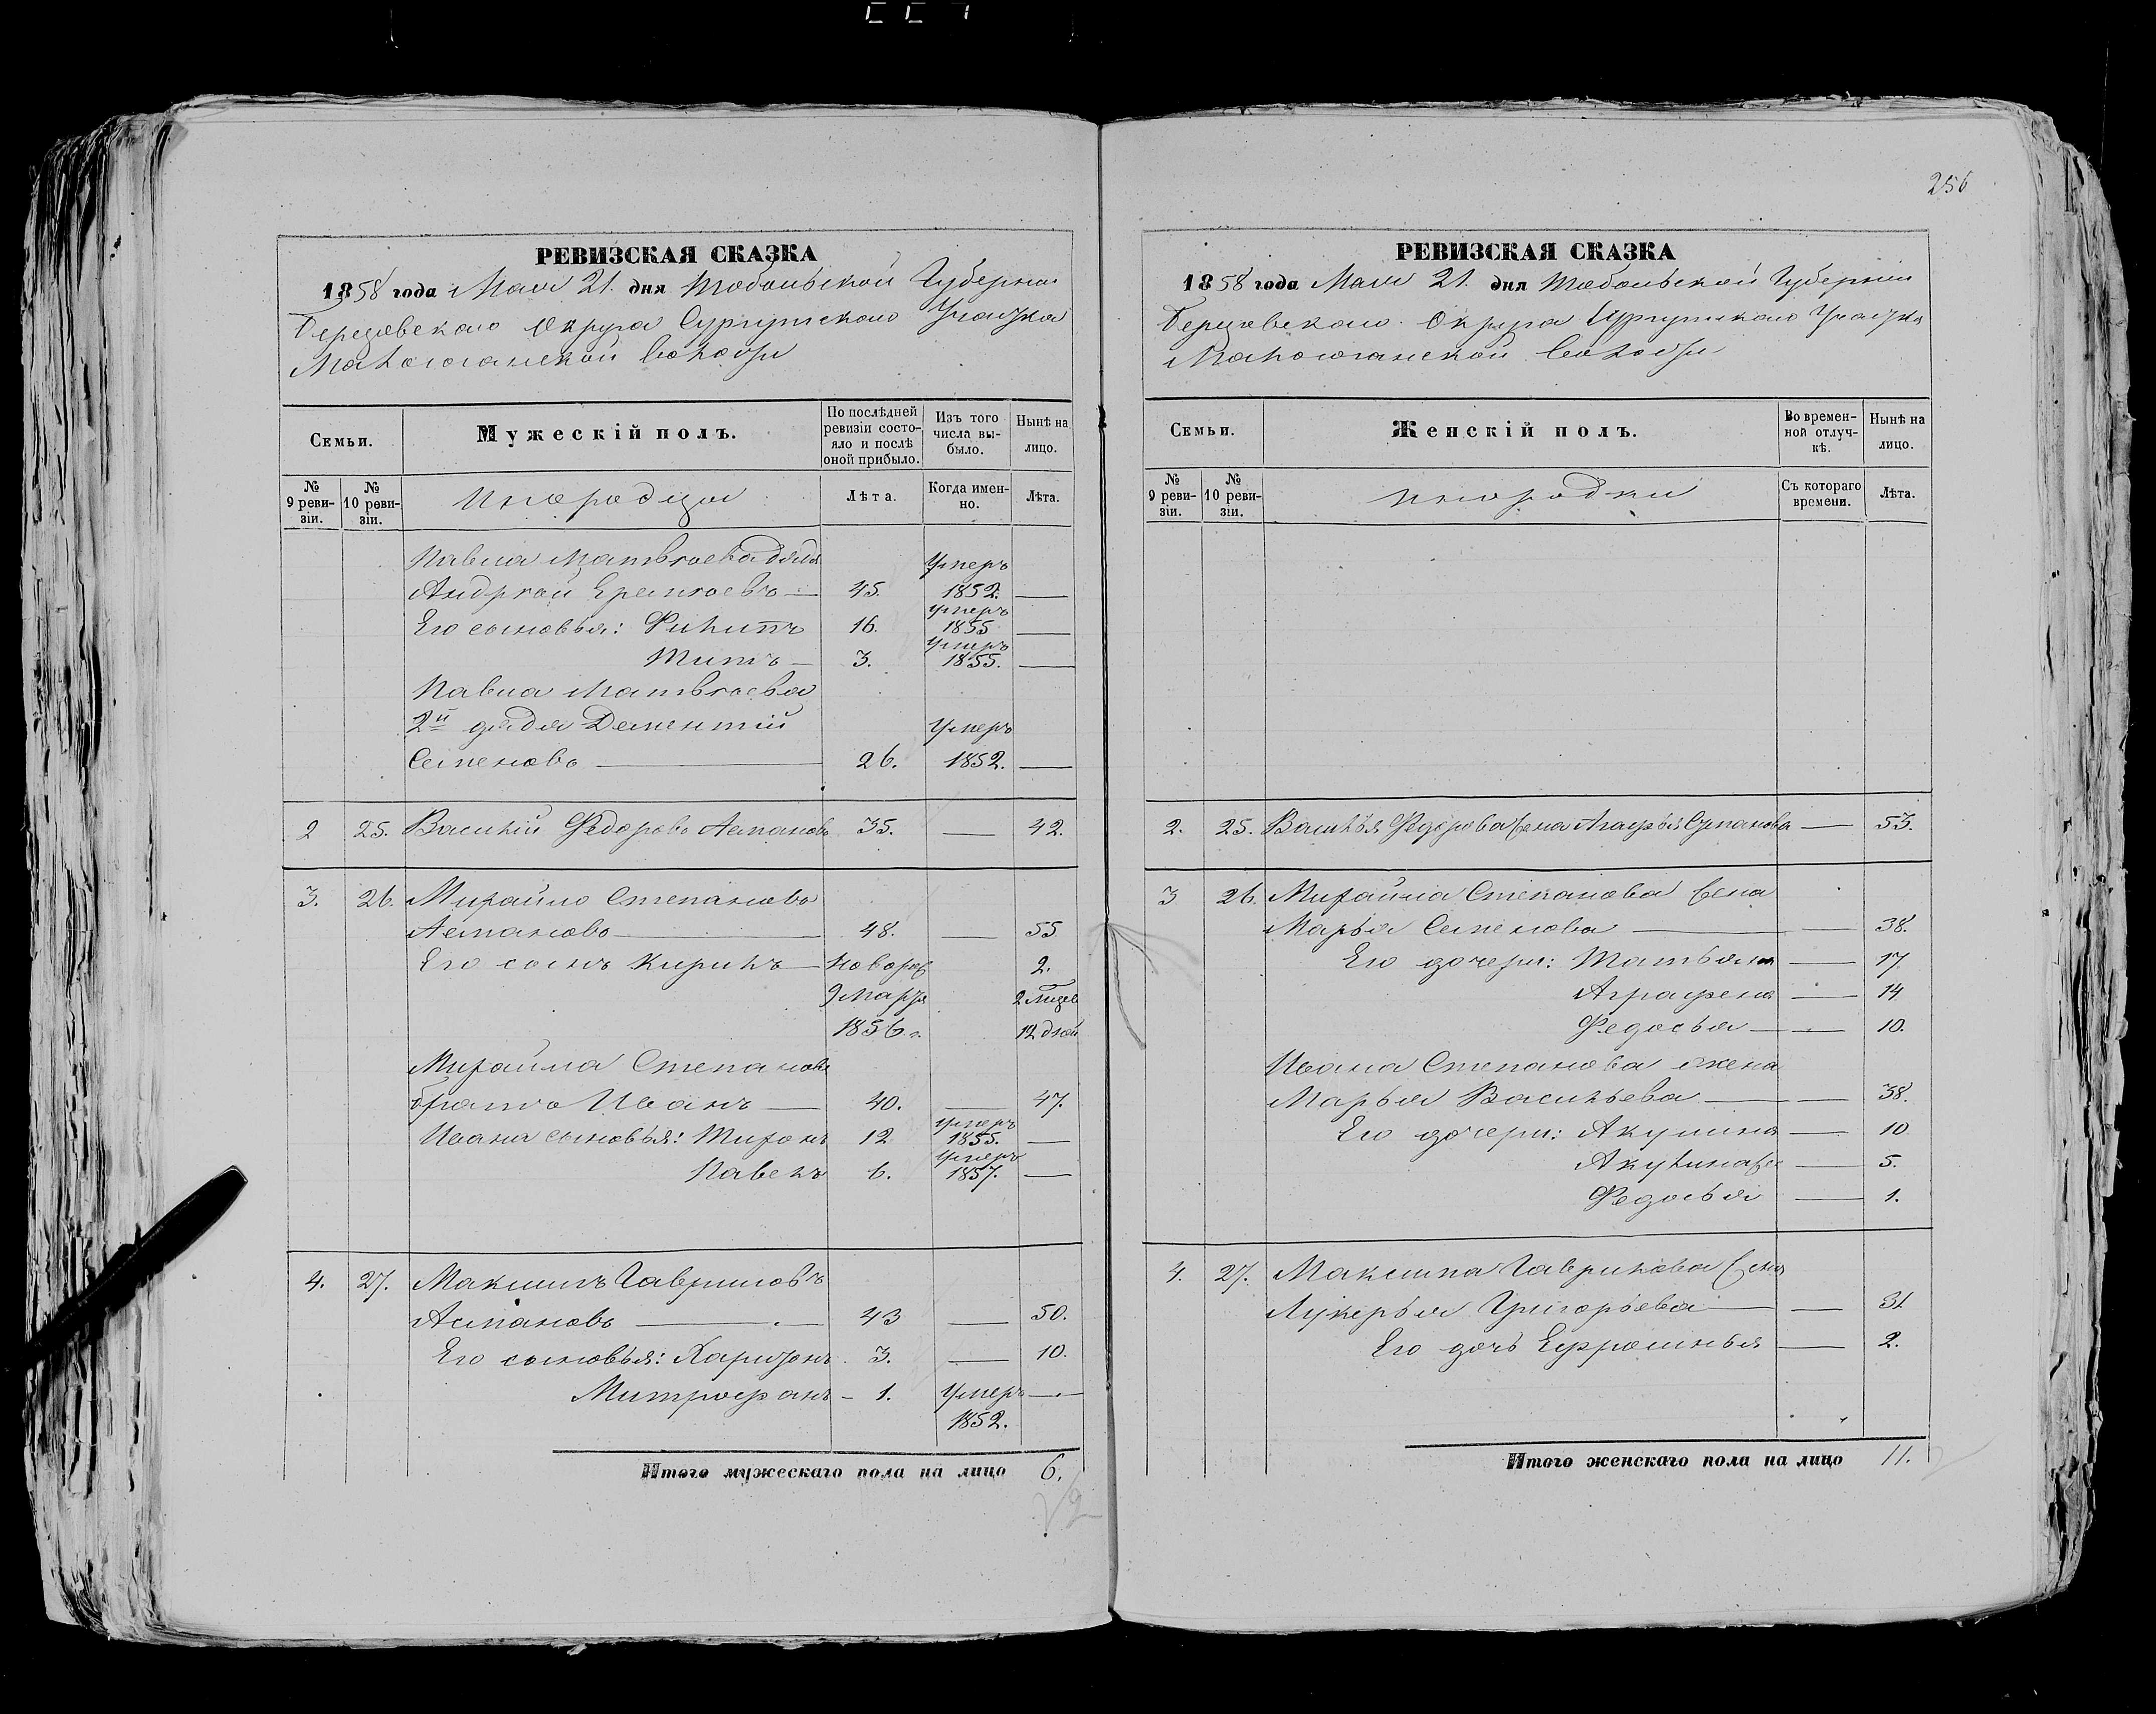 256
РЕВИЗСКАЯ СКАЗКА
1858 года Мая 21. дня Тобольской Губернии
Березовскаго Округа Сургутскаго Участка
Семьи.
Мужескій полъ.
По послѣдней ревизіи состояло и послѣ оной прибыло.
Изъ того числа выбыло.
Нынѣ на лицо.
№ 9 ревизіи.
№ 10 ревизіи.
Инородцы
Лѣта.
Когда именно.
Лѣта.
Павла Матвѣева дядя Умеръ
Андрей Ермѣевъ — 45. 1852. —
Его сыновья: Филипъ 16. умеръ 1855 —
Титъ — 3. умеръ 1855. —
Павла Матвѣева
2й дядя Дементій Умеръ
Семеновъ — 26. 1852. —
2 25. Василій Федоровъ Асмановъ 35. — 42.
3. 26. Михайло Степановъ
Асмановъ — 48. — 55
Его сынъ Кирилъ — новорож 2.
9 марта 2 мцев
1856 г. 12 дней
Михайла Степанова
братъ Иванъ — 40. — 47.
Ивана сыновья: Тихонъ 12 умеръ 1855. —
Павелъ 6. умеръ 1857. —
4. 27. Максимъ Гавриловъ
Асмановъ — 43 — 50.
Его сыновья: Харитонъ. 3. — 10.
Митрофанъ — 1. Умеръ —
1852.
Итого мужескаго пола на лицо 6.
РЕВИЗСКАЯ СКАЗКА
1858 года Мая 21. дня Тобольской Губерніи
Березовскаго Округа Сургутскаго Участка
Семьи.
Женскій полъ.
Во временной отлучкѣ.
Нынѣ на лицо.
№ 9 ревизіи.
№ 10 ревизіи.
инородки
Съ котораго времени.
Лѣта.
2. 25. Василья Федорова жена Агафья Степанова — 53.
3 26. Михайла Степанова жена
Марья Семенова — — 38.
Его дочери: Татьяна — 17
Аграфена — 14
Федосья — — 10.
Ивана Степанова жена
Марья Васильева — — 38.
Его дочери: Акулина — 10
— 5.
Федосья — 1.
4. 27. Максима Гаврилова жена
Лукерья Григорьева — — 31
Его дочь Ефросинья — 2.
Итого женскаго пола на лицо 11.